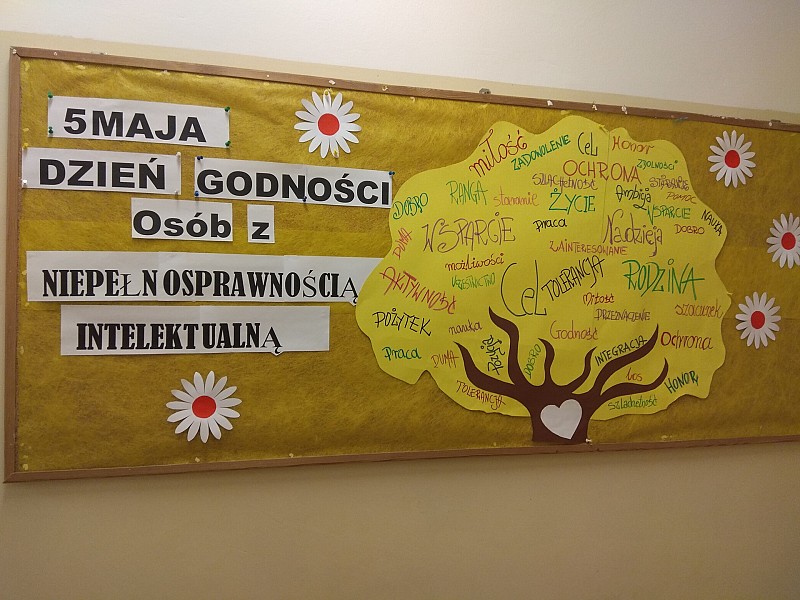 5 MAJA
DZIEŃ GODNOŚCI
Osób z
NIEPEŁNOSPRAWNOŚCIĄ
INTELEKTUALNĄ
miłość
ZADOWOLENIE
CEL
Honor
OCHRONA
ZDOLNOŚCI
DOBRO
RANGA
staranie
SZLACHETNOŚĆ
ŻYCIE
Ambicja
POMOC
WSPARCIE
NAUKA
DUMA
WSPARCIE
praca
Nadzieja
DOBRO
ZAINTERESOWANIE
AKTYWNOŚĆ
możliwości
CEL
TOLERANCJA
RODZINA
Miłość
POŻYTEK
nauka
PRZEZNACZENIE
szacunek
Godność
Ochrona
praca
DUMA
DOBRO
INTEGRACJA
los
HONOR
TOLERANCJA
szlachetność